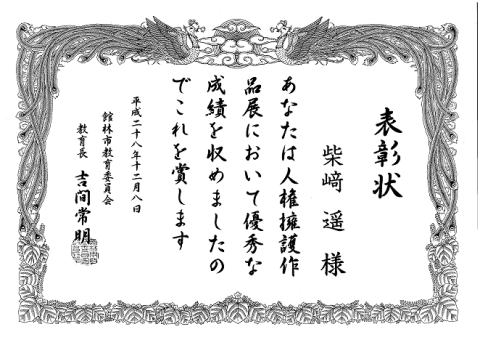 表彰状
柴﨑 遥 様
あなたは人権擁護作
品展において優秀な
成績を収めましたの
でこれを賞します
平成二十八年十二月八日
館林市教育委員会
教育長 吉間常明